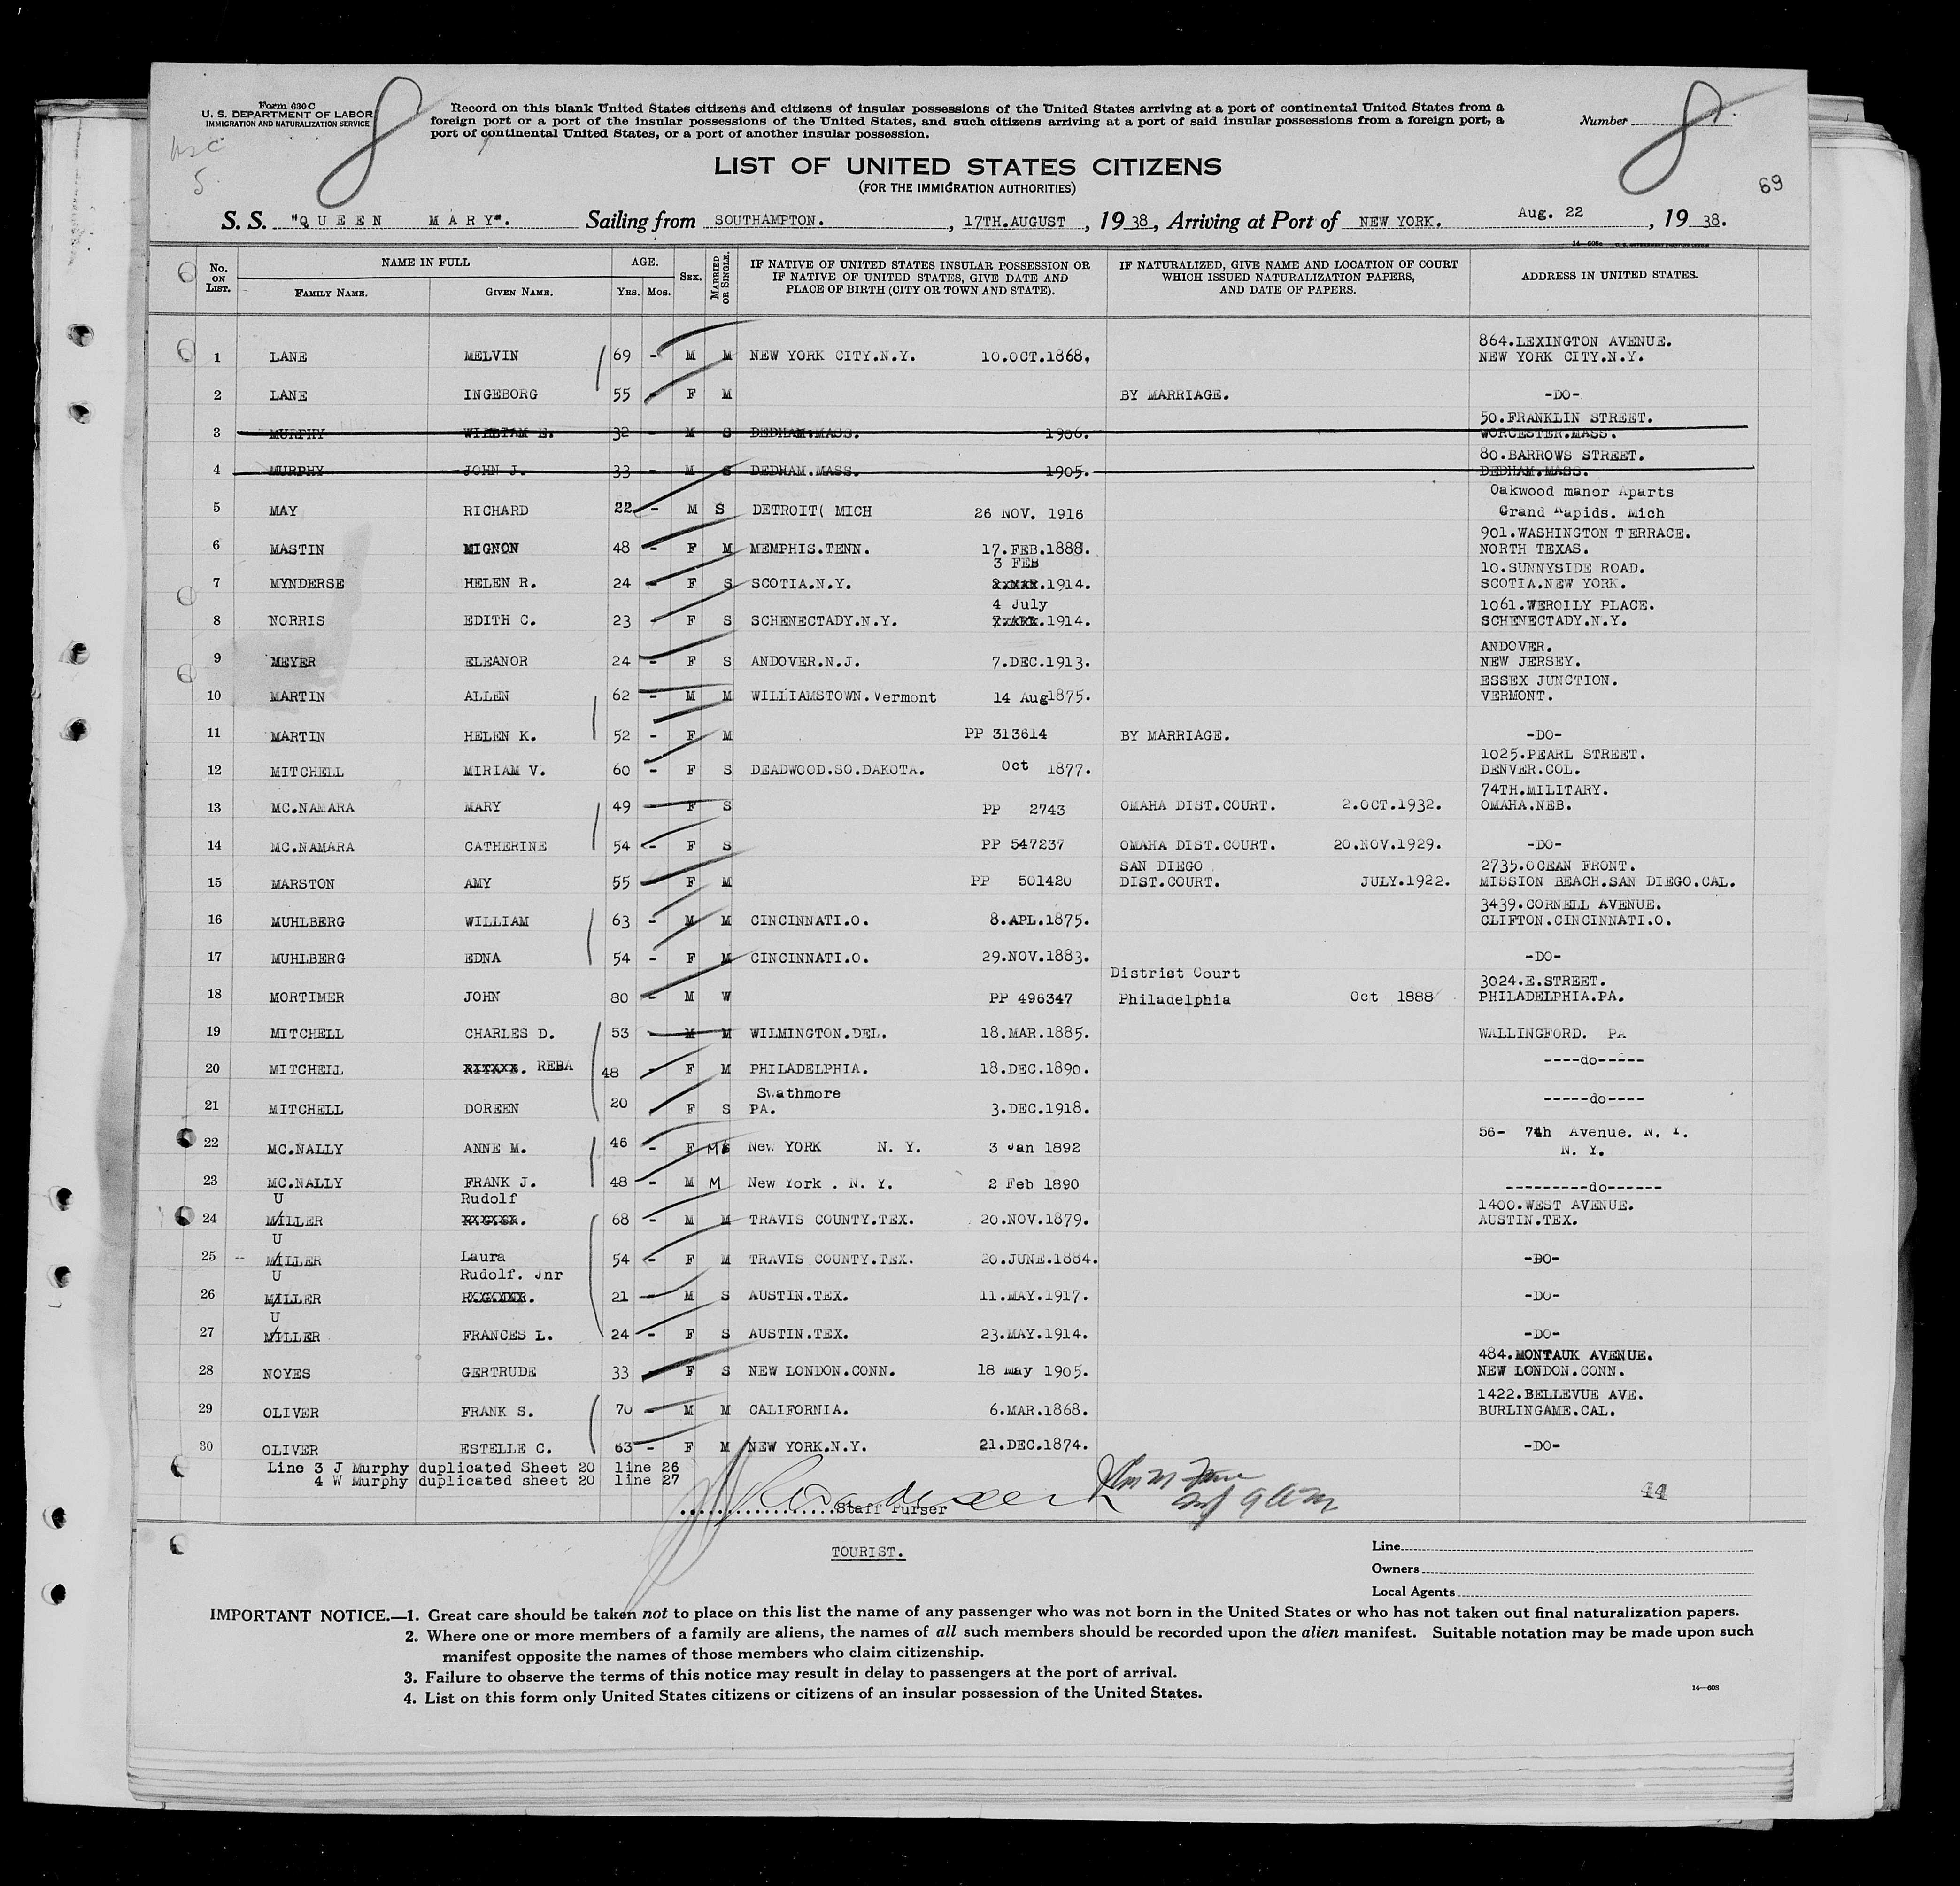 8
8
Form 630 C
U. S. DEPARTMENT OF LABOR
IMMIGRATION AND NATURALIZATION SERVICE
Record on this blank United States citizens and citizens of insular possessions of the United States arriving at a port of continental United States from a
foreign port or a port of the insular possessions of the United States, and such citizens arriving at a port of said insular possessions from a foreign port, a
port of continental United States, or a port of another insular possession.
Number
5.
LIST OF UNITED STATES CITIZENS
(FOR THE IMMIGRATION AUTHORITIES)
69
S. S. "QUEEN MARY". Sailing from SOUTHAMPTON. , 17TH.AUGUST , 19 38, Arriving at Port of NEW YORK. Aug. 22 , 19 38.
No. ON LIST. NAME IN FULL FAMILY NAME. GIVEN NAME. AGE. YRS. MOS. SEX. MARRIED OR SINGLE. IF NATIVE OF UNITED STATES INSULAR POSSESSION OR IF NATIVE OF UNITED STATES, GIVE DATE AND PLACE OF BIRTH (CITY OR TOWN AND STATE). IF NATURALIZED, GIVE NAME AND LOCATION OF COURT WHICH ISSUED NATURALIZATION PAPERS, AND DATE OF PAPERS. ADDRESS IN UNITED STATES.
1 LANE MELVIN 69 - M M NEW YORK CITY.N.Y. 10.OCT.1868, 864.LEXINGTON AVENUE. NEW YORK CITY.N.Y.
2 LANE INGEBORG 55 - F M BY MARRIAGE. -DO-
3 MURPHY WILLIAM E. 32 - M S DEDHAM.MASS. 1906. 50.FRANKLIN STREET. WORCESTER.MASS.
4 MURPHY JOHN J. 33 - M S DEDHAM.MASS. 1905. 80.BARROWS STREET. DEDHAM.MASS.
5 MAY RICHARD 22 - M S DETROIT( MICH 26 NOV. 1916 Oakwood manor Aparts Grand Rapids. Mich
6 MASTIN MIGNON 48 - F M MEMPHIS.TENN. 17.FEB.1888. 901.WASHINGTON TERRACE. NORTH TEXAS.
7 MYNDERSE HELEN R. 24 - F S SCOTIA.N.Y. 3 FEB .1914. 10.SUNNYSIDE ROAD. SCOTIA.NEW YORK.
8 NORRIS EDITH C. 23 - F S SCHENECTADY.N.Y. 4 July .1914. 1061.WEROILY PLACE. SCHENECTADY.N.Y.
9 MEYER ELEANOR 24 - F S ANDOVER.N.J. 7.DEC.1913. ANDOVER. NEW JERSEY.
10 MARTIN ALLEN 62 - M M WILLIAMSTOWN.Vermont 14 Aug1875. ESSEX JUNCTION. VERMONT.
11 MARTIN HELEN K. 52 - F M PP 313614 BY MARRIAGE. -DO-
12 MITCHELL MIRIAM V. 60 - F S DEADWOOD.SO.DAKOTA. Oct 1877. 1025.PEARL STREET. DENVER.COL.
13 MC.NAMARA MARY 49 F S PP 2743 OMAHA DIST.COURT. 2.OCT.1932. 74TH.MILITARY. OMAHA.NEB.
14 MC.NAMARA CATHERINE 54 - F S PP 547237 OMAHA DIST.COURT. 20.NOV.1929. -DO-
15 MARSTON AMY 55 F M PP 501420 SAN DIEGO DIST.COURT. JULY.1922. 2735.OCEAN FRONT. MISSION BEACH.SAN DIEGO.CAL.
16 MUHLBERG WILLIAM 63 - M M CINCINNATI.O. 8.APL.1875. 3439.CORNELL AVENUE. CLIFTON.CINCINNATI.O.
17 MUHLBERG EDNA 54 - F M CINCINNATI.O. 29.NOV.1883. -DO-
18 MORTIMER JOHN 80 - M W PP 496347 District Court Philadelphia Oct 1888 3024.E.STREET. PHILADELPHIA.PA.
19 MITCHELL CHARLES D. 53 M M WILMINGTON.DEL. 18.MAR.1885. WALLINGFORD. PA
20 MITCHELL REBA 48 - F M PHILADELPHIA. 18.DEC.1890. ----do-----
21 MITCHELL DOREEN 20 F S Swathmore PA. 3.DEC.1918. -----do----
22 MC.NALLY ANNE M. 46 - F M New YORK N. Y. 3 Jan 1892 56- 74h Avenue. N. Y. N. Y.
23 MC.NALLY FRANK J. 48 - M M New York . N. Y. 2 Feb 1890 ---------do------
24 U MILLER Rudolf 68 - M M TRAVIS COUNTY.TEX. 20.NOV.1879. 1400.WEST AVENUE. AUSTIN.TEX.
25 U MILLER Laura 54 - F M TRAVIS COUNTY.TEX. 20.JUNE.1884. -DO-
26 U MILLER Rudolf. Jnr 21 - M S AUSTIN.TEX. 11.MAY.1917. -DO-
27 U MILLER FRANCES L. 24 - F S AUSTIN.TEX. 23.MAY.1914. -DO-
28 NOYES GERTRUDE 33 F S NEW LONDON.CONN. 18 may 1905. 484.MONTAUK AVENUE. NEW LONDON.CONN.
29 OLIVER FRANK S. 70 - M M CALIFORNIA. 6.MAR.1868. 1422.BELLEVUE AVE. BURLINGAME.CAL.
30 OLIVER ESTELLE C. 63 - F M NEW YORK.N.Y. 21.DEC.1874. -DO-
Line 3 J Murphy duplicated Sheet 20 line 26
4 W Murphy duplicated sheet 20 line 27
Staff Purser
44
TOURIST.
Line
Owners
Local Agents
IMPORTANT NOTICE.—1. Great care should be taken not to place on this list the name of any passenger who was not born in the United States or who has not taken out final naturalization papers.
2. Where one or more members of a family are aliens, the names of all such members should be recorded upon the alien manifest. Suitable notation may be made upon such
manifest opposite the names of those members who claim citizenship.
3. Failure to observe the terms of this notice may result in delay to passengers at the port of arrival.
4. List on this form only United States citizens or citizens of an insular possession of the United States.
14—608